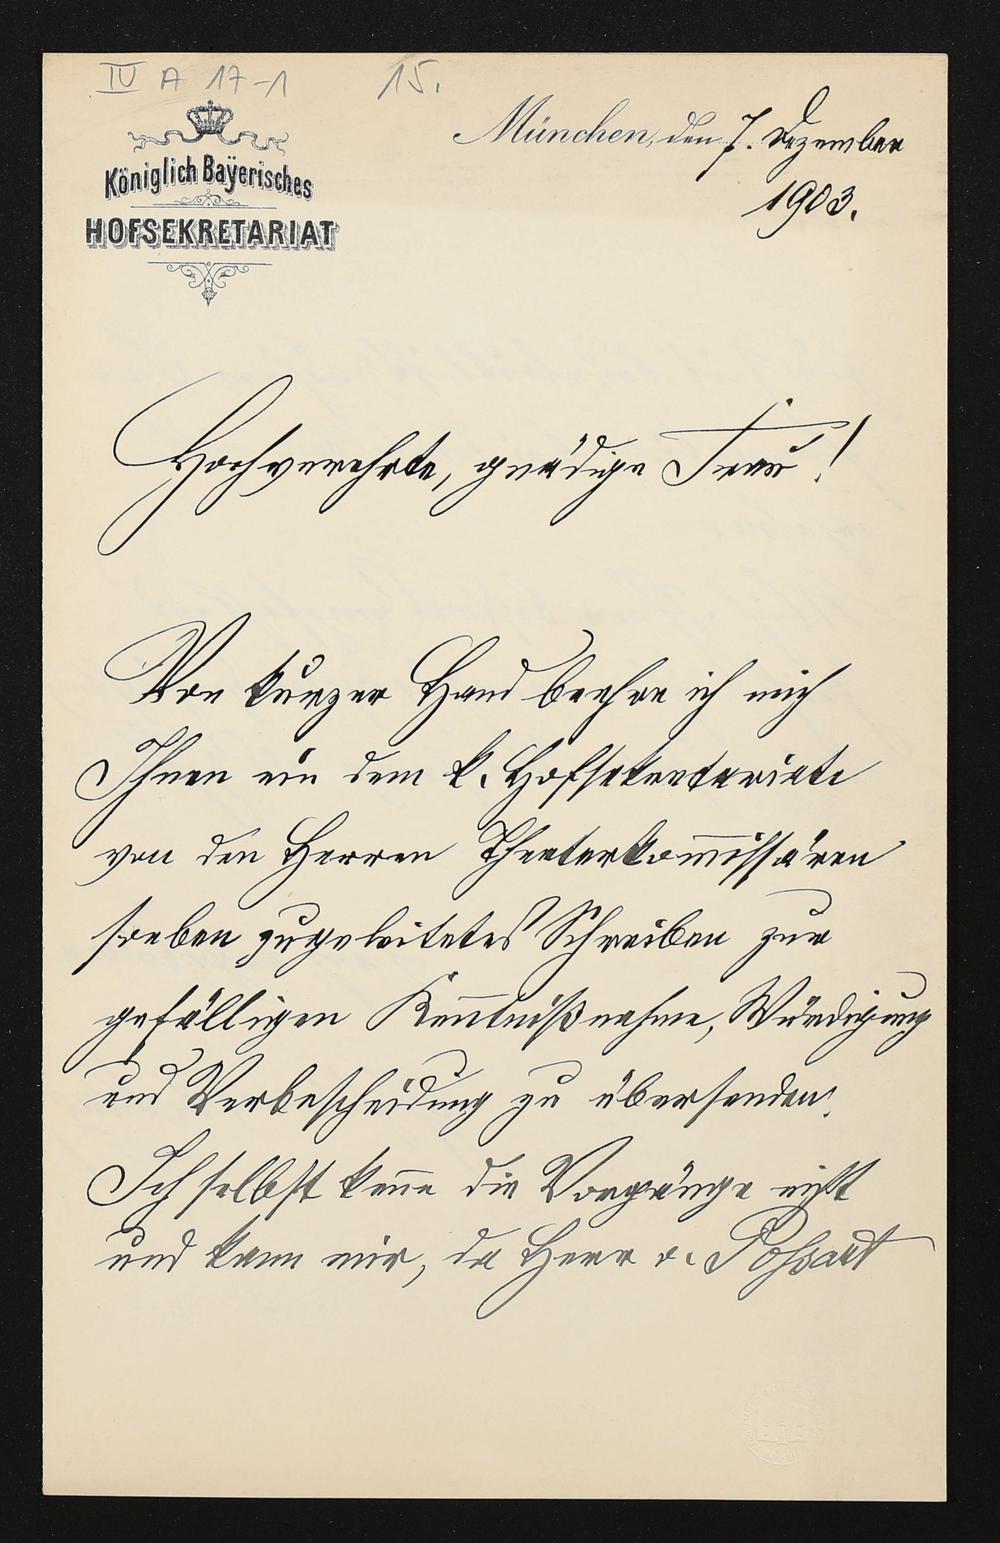 IV A 17-1 15.
Königlich Bayerisches
HOFSEKRETARIAT
München, den 7. Dezember
1903.
Hochverehrte, gnädige Frau!
Von kurzer Hand beehre ich mich
Ihnen ein dem k. Hofsekretariate
von den Herren Theaterkom̅issären
soeben zugeleitetes Schreiben zur
gefälligen Ken̅tnißnahme, Würdigung
und Verbescheidung zu übersenden.
Ich selbst ken̅e die Vorgänge nicht
und kann mir, da Herr v. Possart